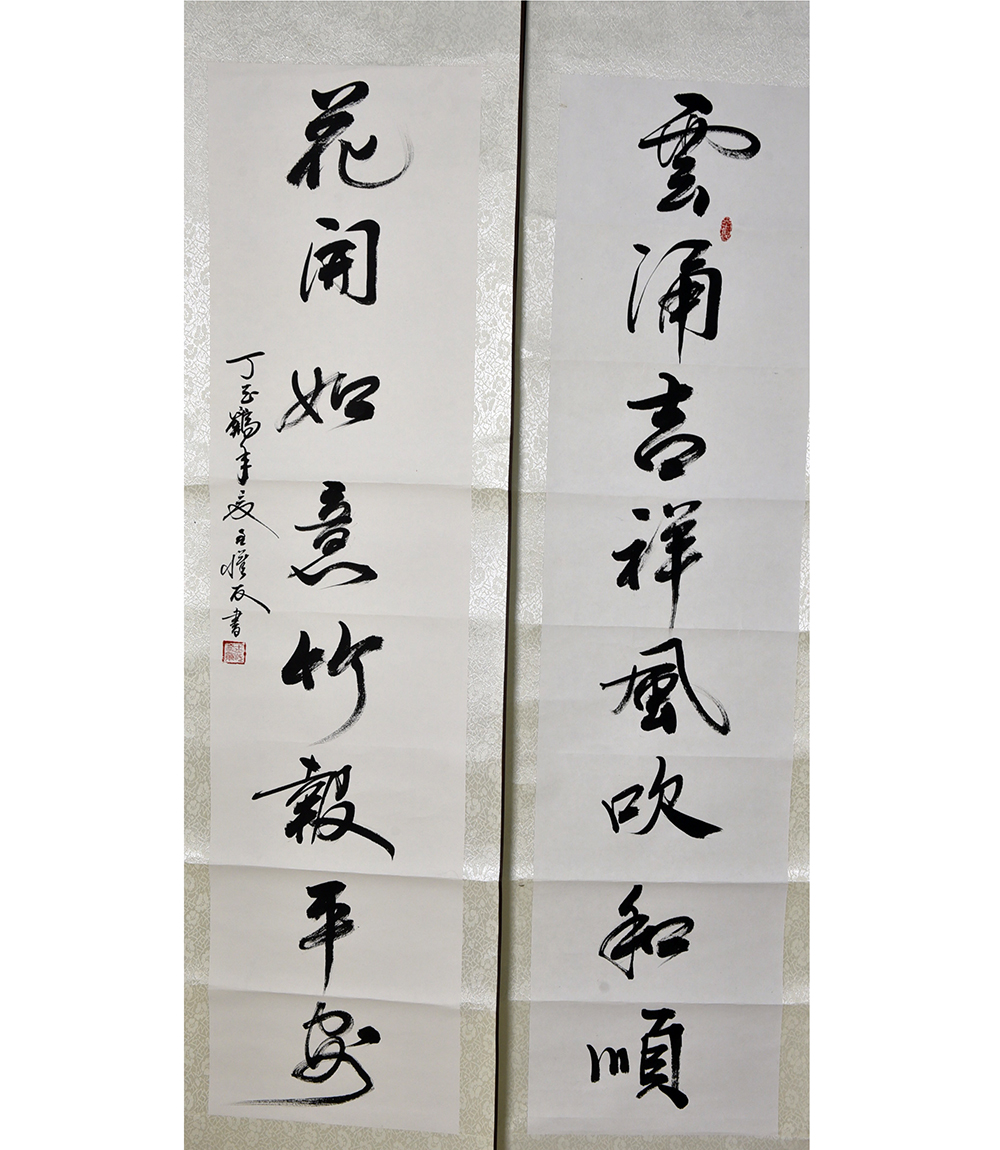 雲涌吉祥風吹和順
花開如意竹報平安
丁亥鶴年夏王懂友書